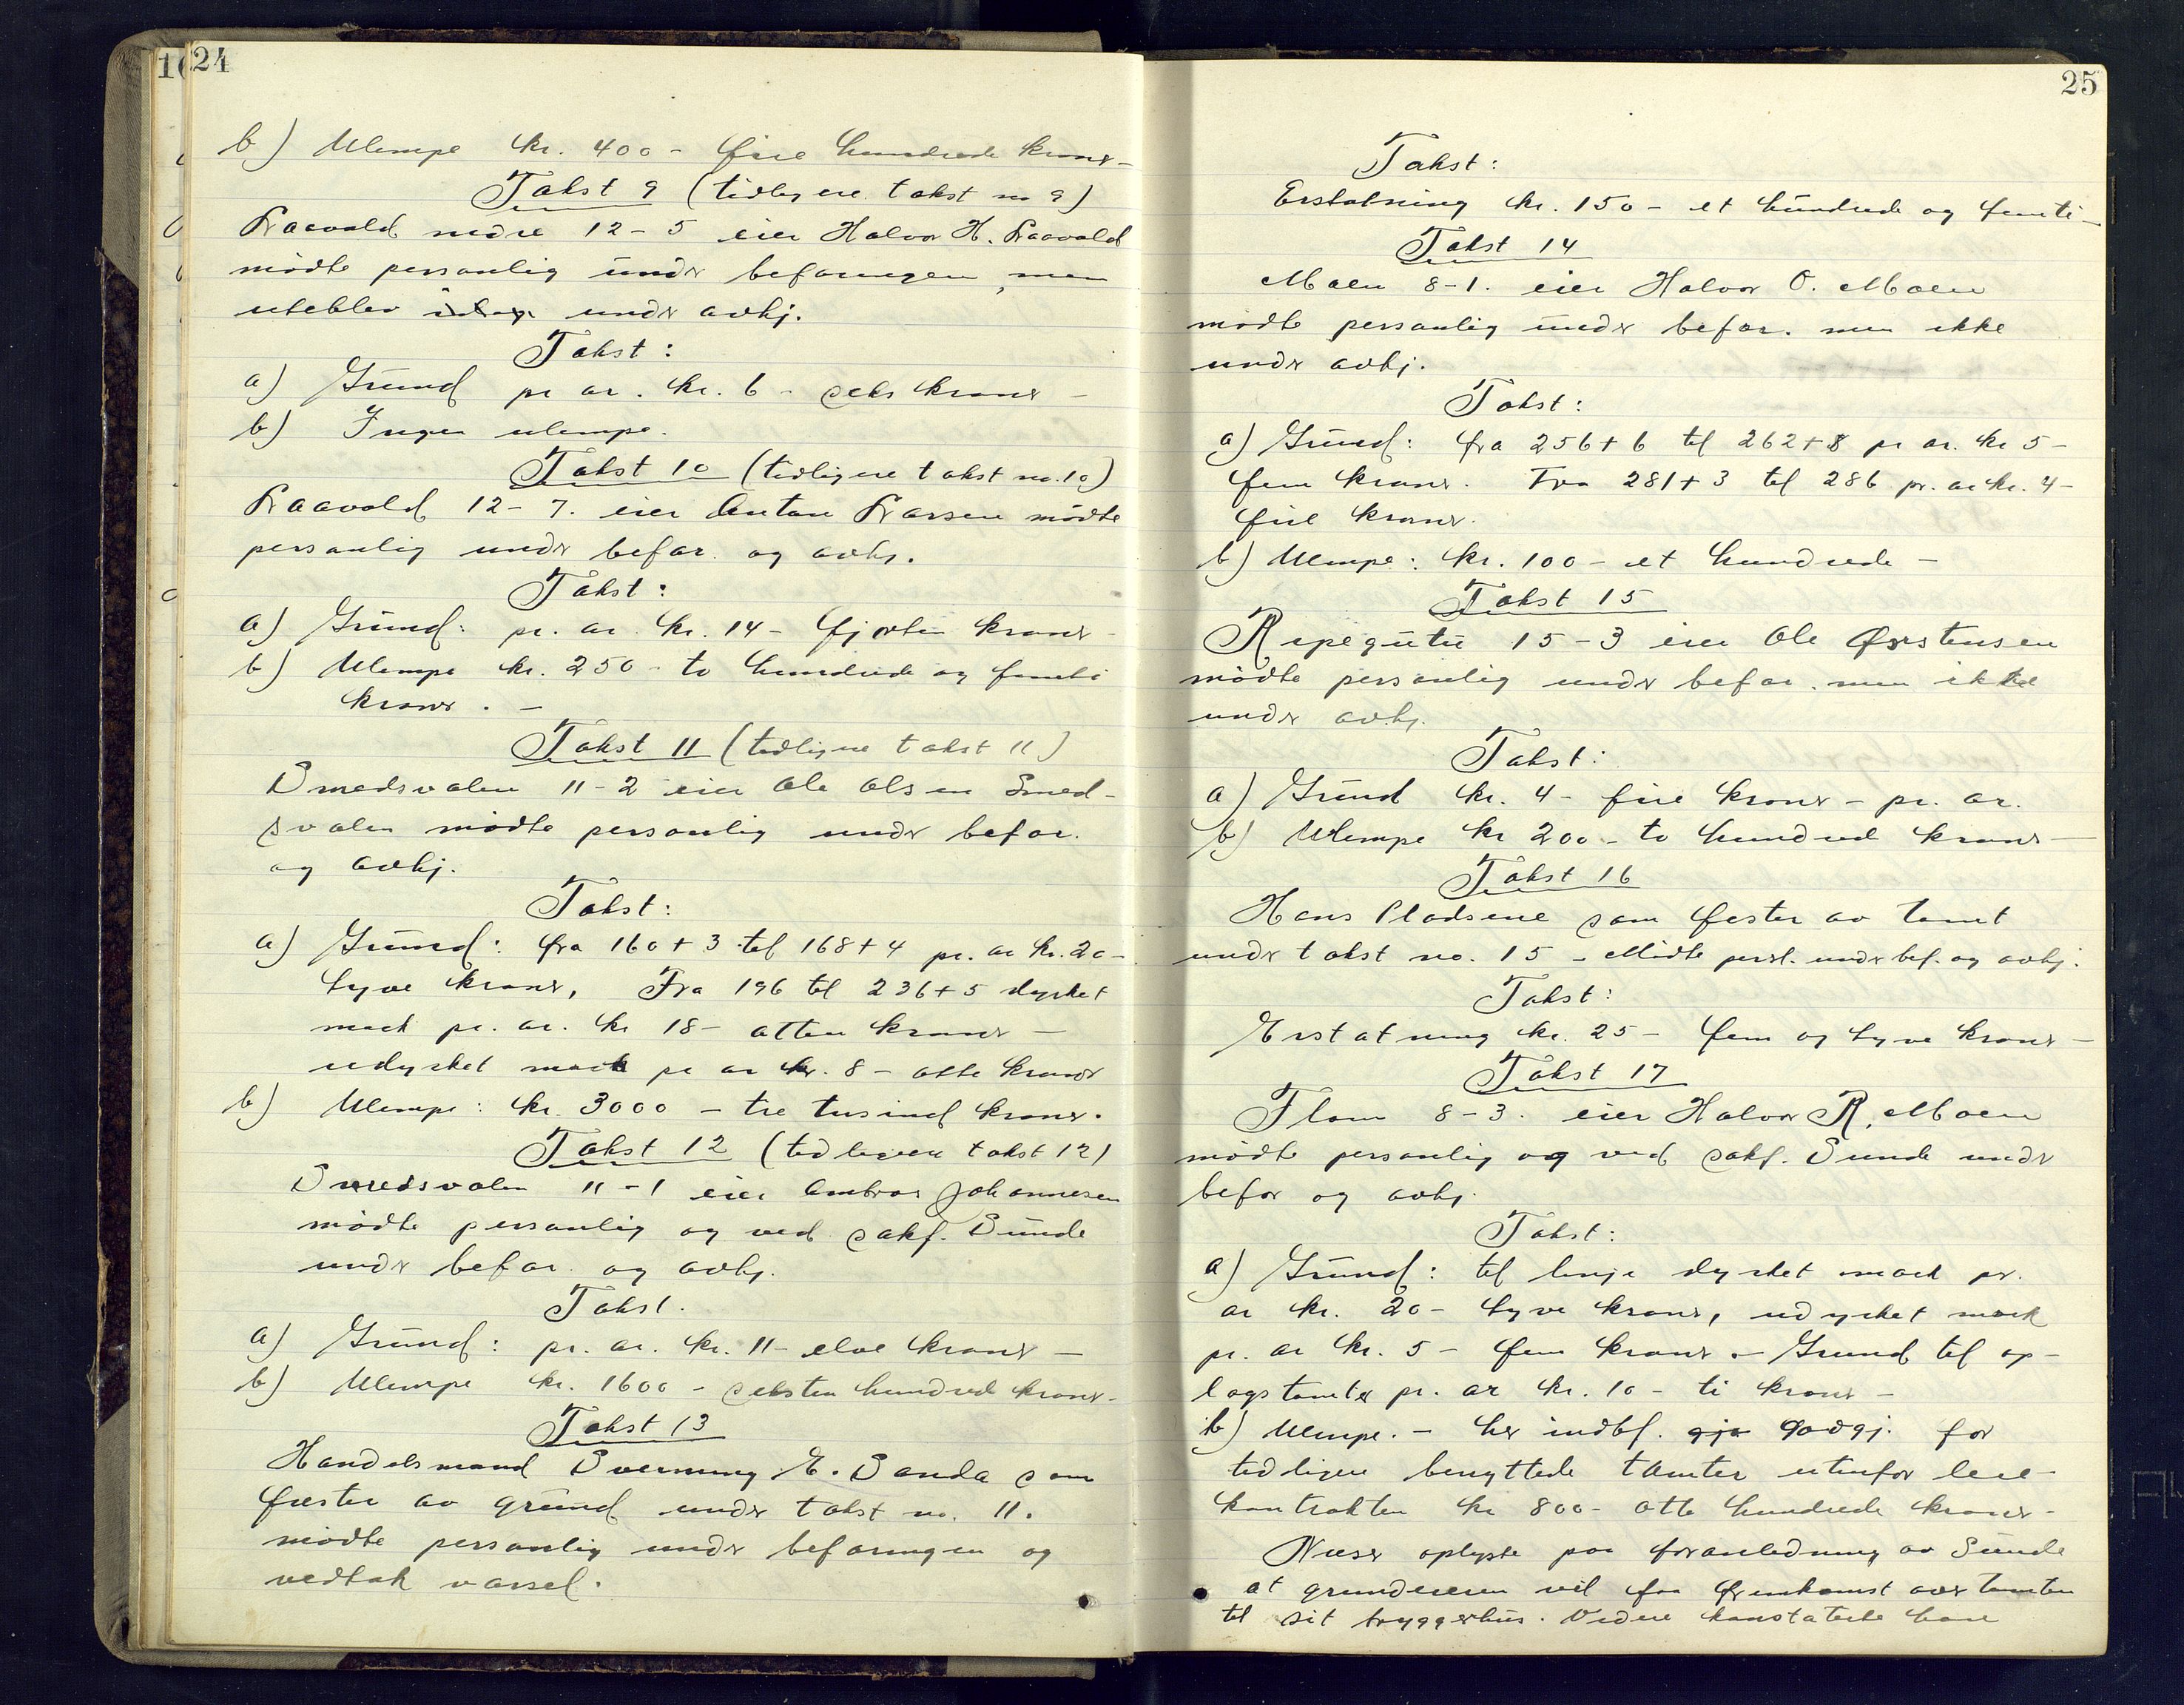 24
b) Ulempe kr. 400 - fire hundrede kroner -
Takst 9 (tidligere takst no 9)
Raavold nedre 12-5 eier Halvor H. Raavold
mødte personlig under befaringen, men
uteblev under avhj.
Takst:
a) Grund pr ar. kr. 6 - seks kroner -
b) Ingen ulempe.
Takst 10 (tidligere takst no. 10)
Raavold 12-7. eier Anton Larsen mødte
personlig under befar. og avhj.
Takst:
a) Grund: pr. ar. kr. 14 - fjorten kroner -
b) Ulempe kr. 250 - to hundrede og femti
kroner. -
Takst 11 (tidligere takst 11)
Smedsvalen 11-2 eier Ole Olsen Smed-
svalen mødte personlig under befar.
og avhj.
Takst:
a) Grund: fra 160+3 til 168+4 pr. ar kr. 20 -
tyve kroner, Fra 196 til 236+5 dyrket
mark pr. ar. kr 18 - atten kroner -
udyrket mark pr ar kr. 8 - otte kroner
b) Ulempe: kr. 3000 - tre tusind kroner.
Takst 12 (tidligere takst 12)
Smedsvalen 11-1 eier Ambros Johannesen
mødte personlig og ved sakf. Sunde
under befar. og avhj.
Takst.
a) Grund: pr. ar. kr. 11 - elve kroner -
b) Ulempe kr. 1600 - seksten hundred kroner -
Takst 13
Handelsmand Svenning E. Sanda som
fæster av grund under takst no. 11.
mødte personlig under befaringen og
vedtak varsel.
25
Takst:
Erstatning kr. 150 - et hundrede og femti -
Takst 14
Moen 8-1. eier Halvor O. Moen
mødte personlig under befar. men ikke
under avhj.
Takst:
a) Grund: fra 256+6 til 262+8 pr ar. kr 5 -
fem kroner. Fra 281+3 til 286 pr. ar kr. 4 -
fire kroner.
b) Ulempe: kr. 100 - et hundrede -
Takst 15
Ripegutu 15-3 eier Ole Østensen
mødte personlig under befar. men ikke
under avhj.
Takst:
a) Grund kr. 4 - fire kroner - pr. ar.
b) Ulempe kr 200 - to hundred kroner -
Takst 16
Hans Pladsene som fester av tomt
under takst no. 15 - Mødte persl. under bef. og avhj.
Takst:
Erstatning kr. 25 - fem og tyve kroner -
Takst 17
Flom 8-3. eier Halvor R. Moen
mødte personlig og ved sakf. Sunde under
befar og avhj.
Takst:
a) Grund: til linje dyrket mark pr.
ar kr. 20 - tyve kroner, udyrket mark
pr. ar kr. 5 - fem kroner. - Grund til op-
lagstomter pr. ar kr. 10 - ti kroner -
b) Ulempe. - her indbf. godtgj. for
tidligere benyttede tomter utenfor leie-
kontrakten kr 800 - otte hundrede kroner -
oplyste paa foranledning av Sunde
at grundeieren vil faa fremkomst over tomten
til sit bryggerhus. Videre konstaterte han